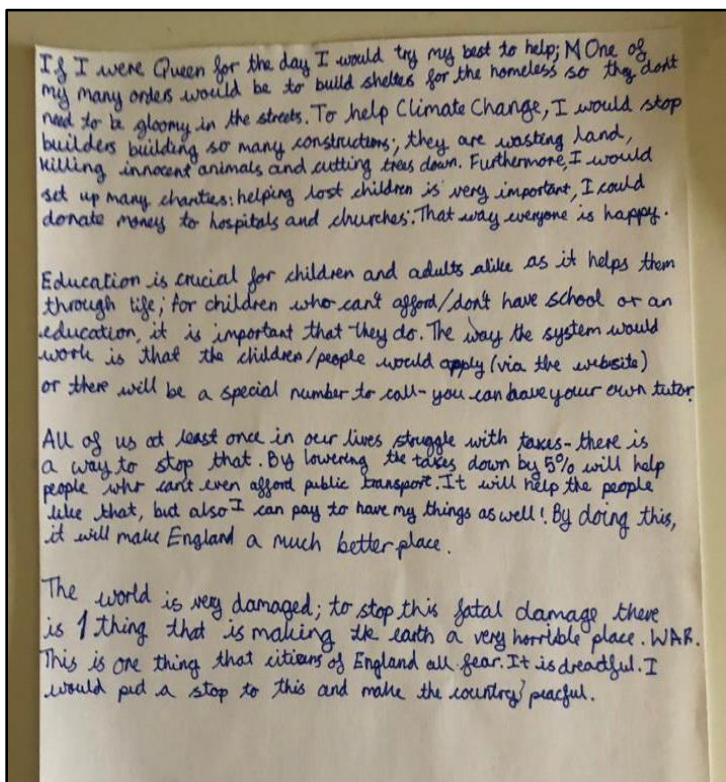 If I were Queen for the day I would try my best to help; One of
my many orders would be to build shelters for the homeless so they dont
need to be gloomy in the streets. To help Climate Change, I would stop
builders building so many constructions; they are wasting land,
killing innocent animals and cutting trees down. Furthermore, I would
set up many charities: helping lost children is very important, I could
donate money to hospitals and churches. That way everyone is happy.

Education is crucial for children and adults alike as it helps them
through life; for children who can't afford/don't have school or an
education, it is important that they do. The way the system would
work is that the children/people would apply (via the website)
or there will be a special number to call- you can have your own tutor.

All of us at least once in our lives struggle with taxes- there is
a way to stop that. By lowering the taxes down by 5% will help
people who cant even afford public transport. It will help the people
like that, but also I can pay to have my things as well! By doing this,
it will make England a much better place.

The world is very damaged; to stop this fatal damage there
is 1 thing that is making the earth a very horrible place. WAR.
This is one thing that citizens of England all fear. It is dreadful. I
would put a stop to this and make the country peacful.